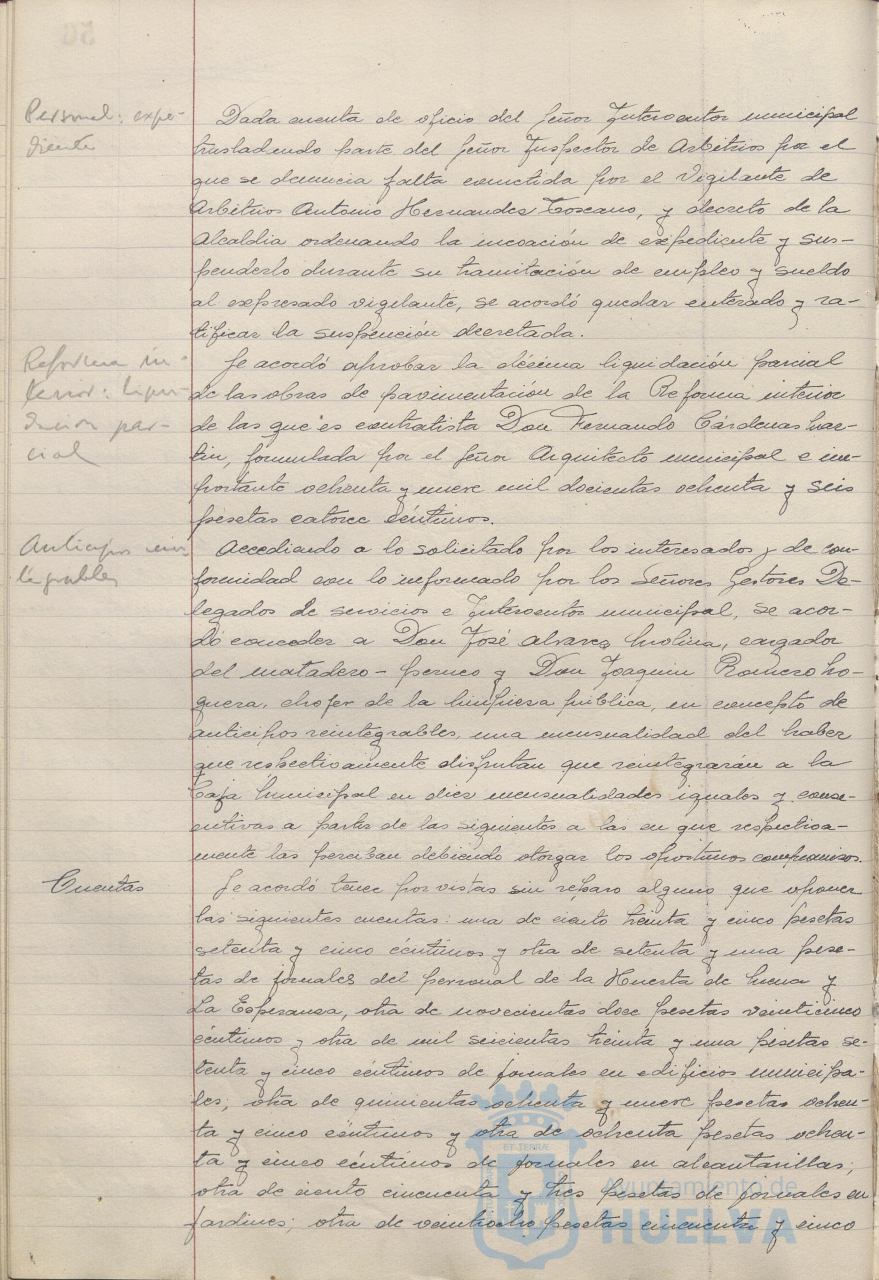 Personal: expe-
diente
Dada cuenta de oficio del Señor Interventor municipal
trasladando parte del Señor Inspector de Arbitrios por el
que se denuncia falta cometida por el Vigilante de
Arbitrios Antonio Hernandez Toscano, y decreto de la
Alcaldia ordenando la incoación de expediente y sus-
penderlo durante su tramitación de empleo y sueldo
al expresado vigilante, se acordó quedar enterado y ra-
tificar la suspención decretada.
Reforma in-
terior: liqui-
dación par-
cial
Se acordó aprobar la décima liquidación parcial
de las obras de pavimentación de la Reforma interior
de las que es contratista Don Fernando Cárdenas Mar-
tin, formulada por el Señor Arquitecto municipal e im-
portante ochenta y nueve mil docientas ochenta y seis
pesetas catorce céntimos.
Anticipos rein
tegrables
Accediendo a lo solicitado por los interesados y de con-
formidad con lo informado por los Señores Gestores De-
legados de servicios e Interventor municipal, se acor-
dó conceder a Don José Alvarez Molina, cargador
del matadero - perneo y Don Joaquin Romero No-
guera, chofer de la limpieza pública, en concepto de
anticipos reintegrables, una mensualidad del haber
que respectivamente disfrutan que reintegrarán a la
Caja Municipal en diez mensualidades iguales y conse-
cutivas a partir de las siguientes a las en que respectiva-
mente las perciban debiendo otorgar los oportunos compromisos.
Cuentas
Se acordó tener por vistas sin reparo alguno que oponer
las siguientes cuentas: una de ciento treinta y cinco pesetas
setenta y cinco céntimos y otra de setenta y una pese-
tas de jornales del personal de la Huerta de Mena y
La Esperanza, otra de novecientas doce pesetas veinticinco
céntimos y otra de mil seicientas treinta y una pesetas se-
tenta y cinco céntimos de jornales en edificios municipa-
les; otra de quinientas ochenta y nueve pesetas ochen-
ta y cinco céntimos y otra de ochenta pesetas ochen-
ta y cinco céntimos de jornales en alcantarillas;
otra de ciento cincuenta y tres pesetas de jornales en
jardines; otra de veintiocho pesetas cincuenta y cinco
Ayuntamiento de
HUELVA